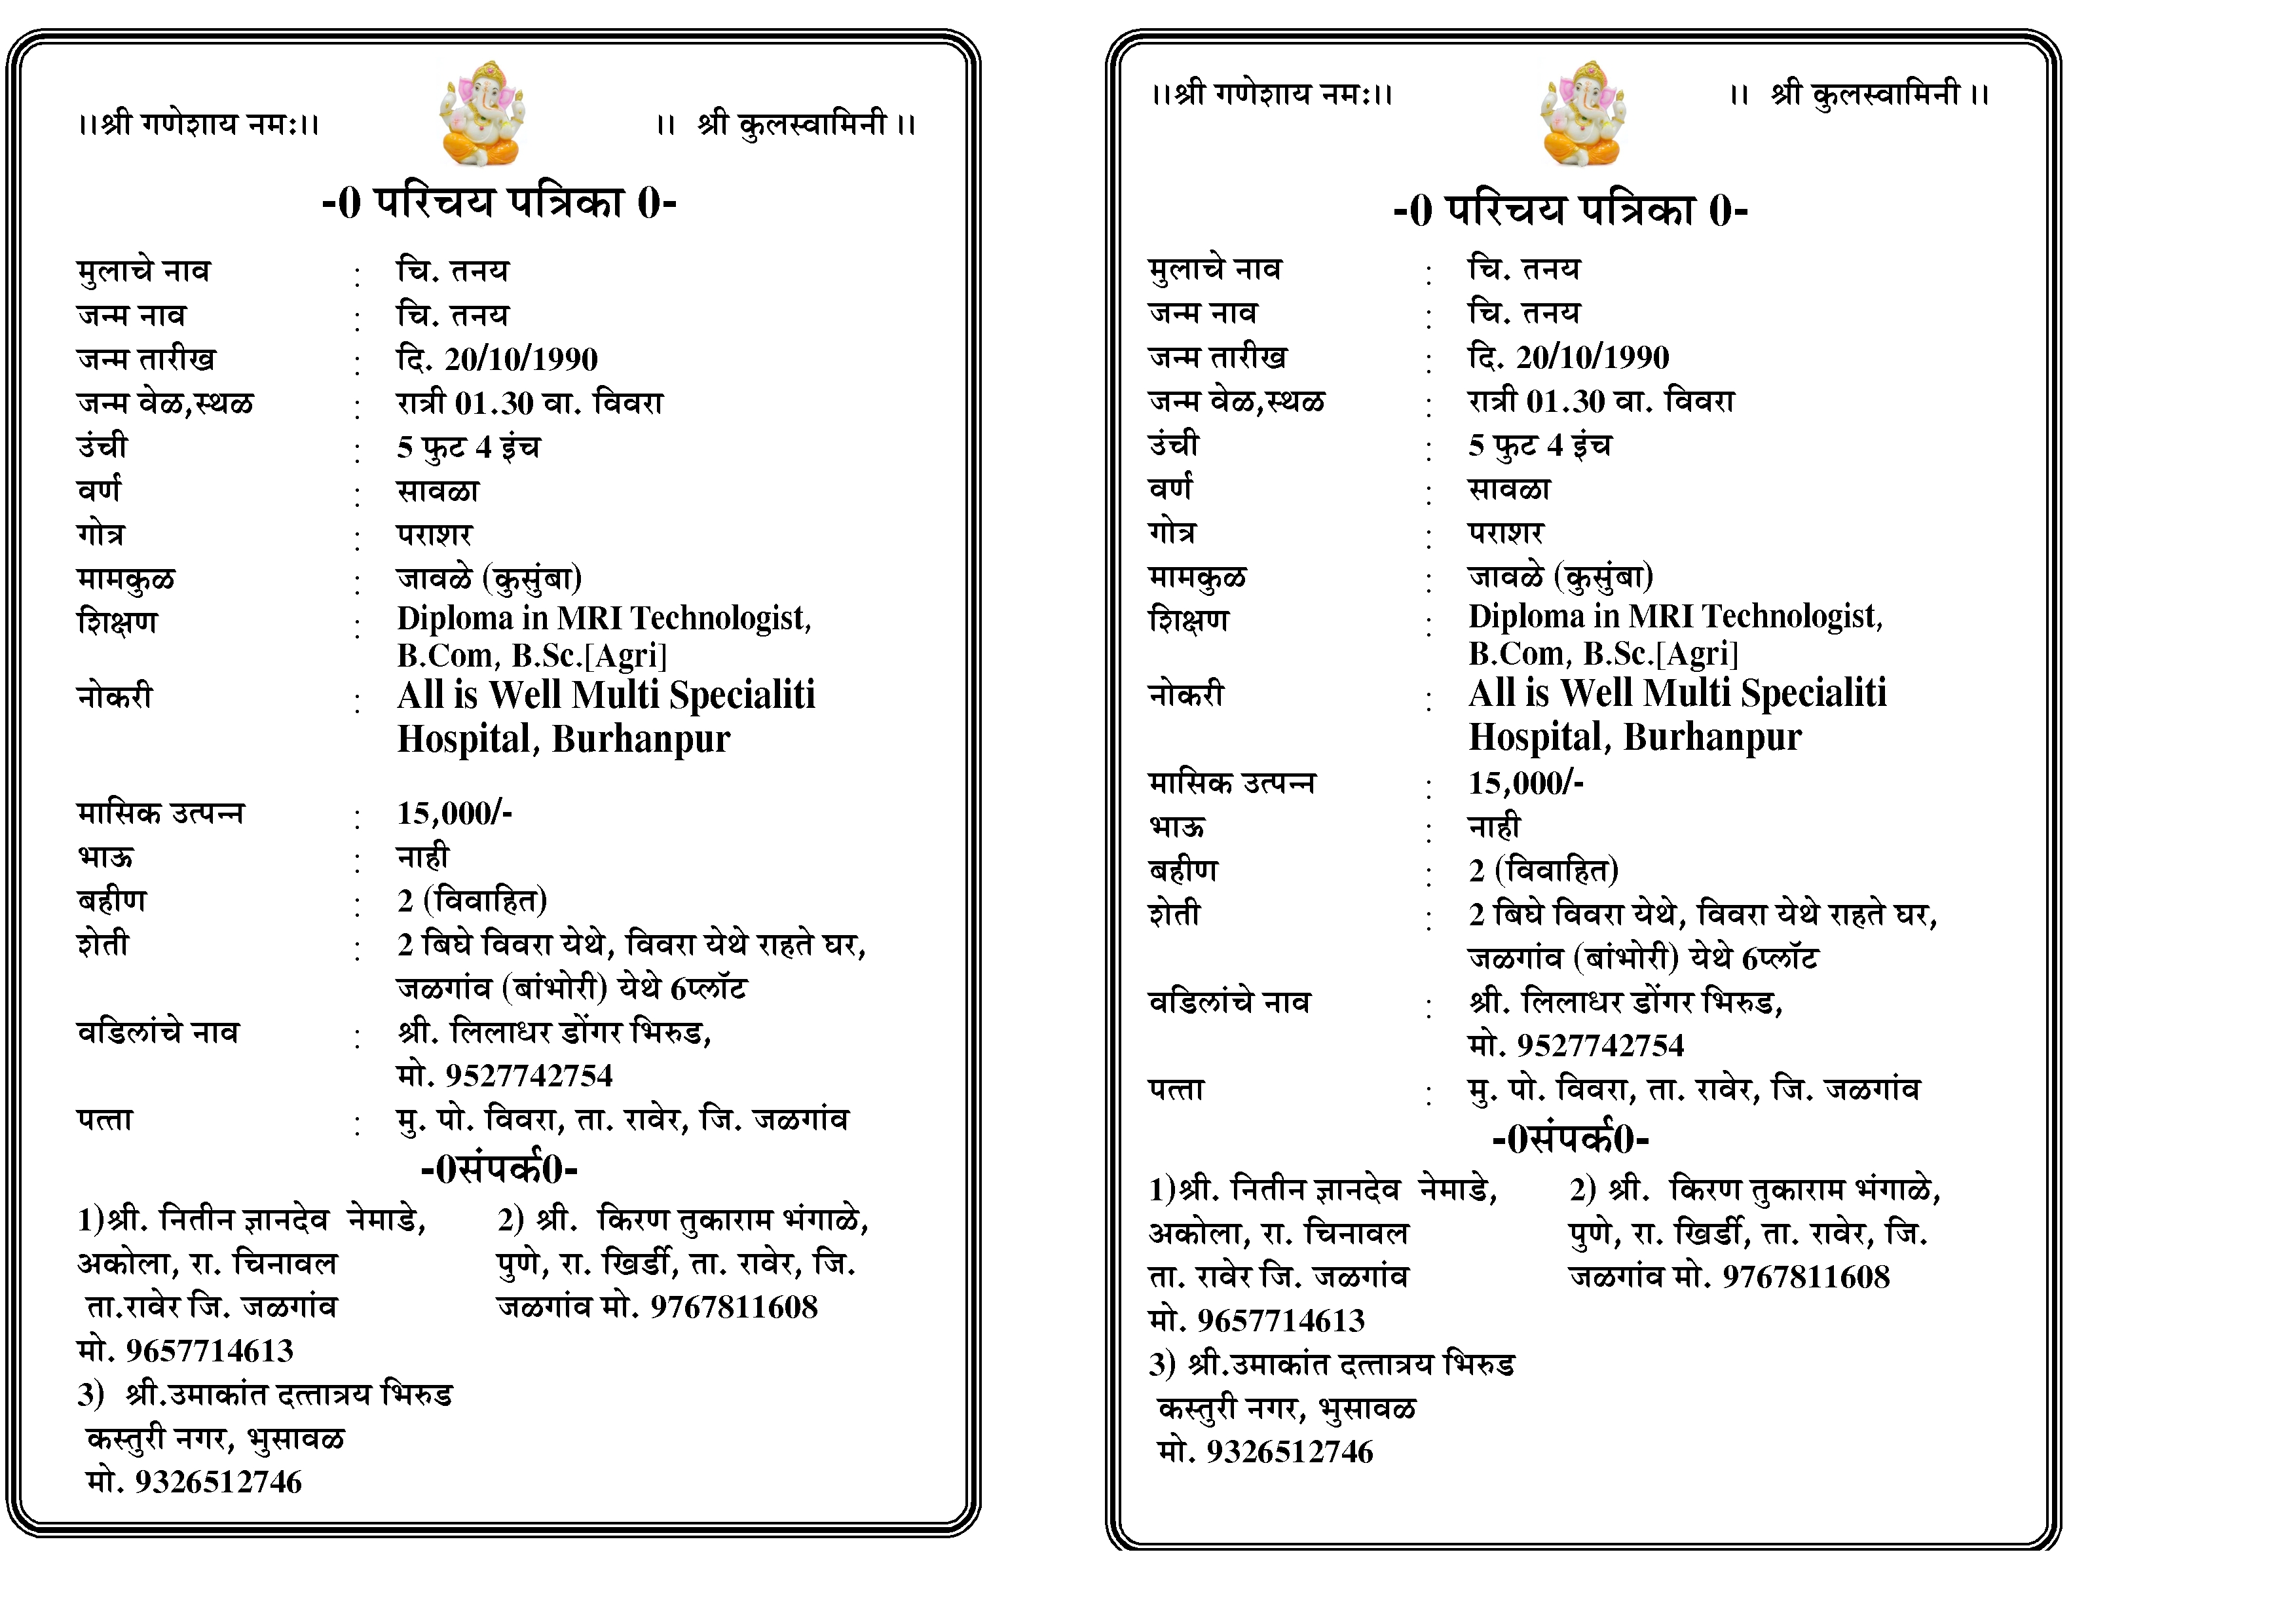 ।।श्री गणेशाय नमः।। ।। श्री कुलस्वामिनी ।।
-0 परिचय पत्रिका 0-
मुलाचे नाव : चि. तनय
जन्म नाव : चि. तनय
जन्म तारीख : दि. 20/10/1990
जन्म वेळ,स्थळ : रात्री 01.30 वा. विवरा
उंची : 5 फुट 4 इंच
वर्ण : सावळा
गोत्र : पराशर
मामकुळ : जावळे (कुसुंबा)
शिक्षण : Diploma in MRI Technologist,
B.Com, B.Sc.[Agri]
नोकरी : All is Well Multi Specialiti
Hospital, Burhanpur
मासिक उत्पन्न : 15,000/-
भाऊ : नाही
बहीण : 2 (विवाहित)
शेती : 2 बिघे विवरा येथे, विवरा येथे राहते घर,
जळगांव (बांभोरी) येथे 6प्लॉट
वडिलांचे नाव : श्री. लिलाधर डोंगर भिरुड,
मो. 9527742754
पत्ता : मु. पो. विवरा, ता. रावेर, जि. जळगांव
-0संपर्क0-
1)श्री. नितीन ज्ञानदेव नेमाडे,
अकोला, रा. चिनावल
ता.रावेर जि. जळगांव
मो. 9657714613
2) श्री. किरण तुकाराम भंगाळे,
पुणे, रा. खिर्डी, ता. रावेर, जि.
जळगांव मो. 9767811608
3) श्री.उमाकांत दत्तात्रय भिरुड
कस्तुरी नगर, भुसावळ
मो. 9326512746
।।श्री गणेशाय नमः।। ।। श्री कुलस्वामिनी ।।
-0 परिचय पत्रिका 0-
मुलाचे नाव : चि. तनय
जन्म नाव : चि. तनय
जन्म तारीख : दि. 20/10/1990
जन्म वेळ,स्थळ : रात्री 01.30 वा. विवरा
उंची : 5 फुट 4 इंच
वर्ण : सावळा
गोत्र : पराशर
मामकुळ : जावळे (कुसुंबा)
शिक्षण : Diploma in MRI Technologist,
B.Com, B.Sc.[Agri]
नोकरी : All is Well Multi Specialiti
Hospital, Burhanpur
मासिक उत्पन्न : 15,000/-
भाऊ : नाही
बहीण : 2 (विवाहित)
शेती : 2 बिघे विवरा येथे, विवरा येथे राहते घर,
जळगांव (बांभोरी) येथे 6प्लॉट
वडिलांचे नाव : श्री. लिलाधर डोंगर भिरुड,
मो. 9527742754
पत्ता : मु. पो. विवरा, ता. रावेर, जि. जळगांव
-0संपर्क0-
1)श्री. नितीन ज्ञानदेव नेमाडे,
अकोला, रा. चिनावल
ता. रावेर जि. जळगांव
मो. 9657714613
2) श्री. किरण तुकाराम भंगाळे,
पुणे, रा. खिर्डी, ता. रावेर, जि.
जळगांव मो. 9767811608
3) श्री.उमाकांत दत्तात्रय भिरुड
कस्तुरी नगर, भुसावळ
मो. 9326512746